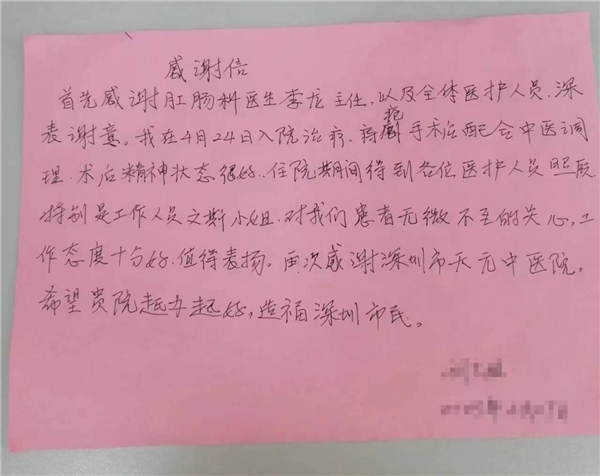 感谢信
首先感谢肛肠科医生李龙主任,以及全体医护人员,深
表谢意。我在4月24日入院治疗,痔疮手术后配合中医调
理.术后精神状态很好.住院期间得到各位医护人员照顾
特别是工作人员文斯小姐.对我们患者无微不至的关心,工
作态度十分好.值得表扬。再次感谢深圳市天元中医院,
希望贵院越办越好,造福深圳市民。